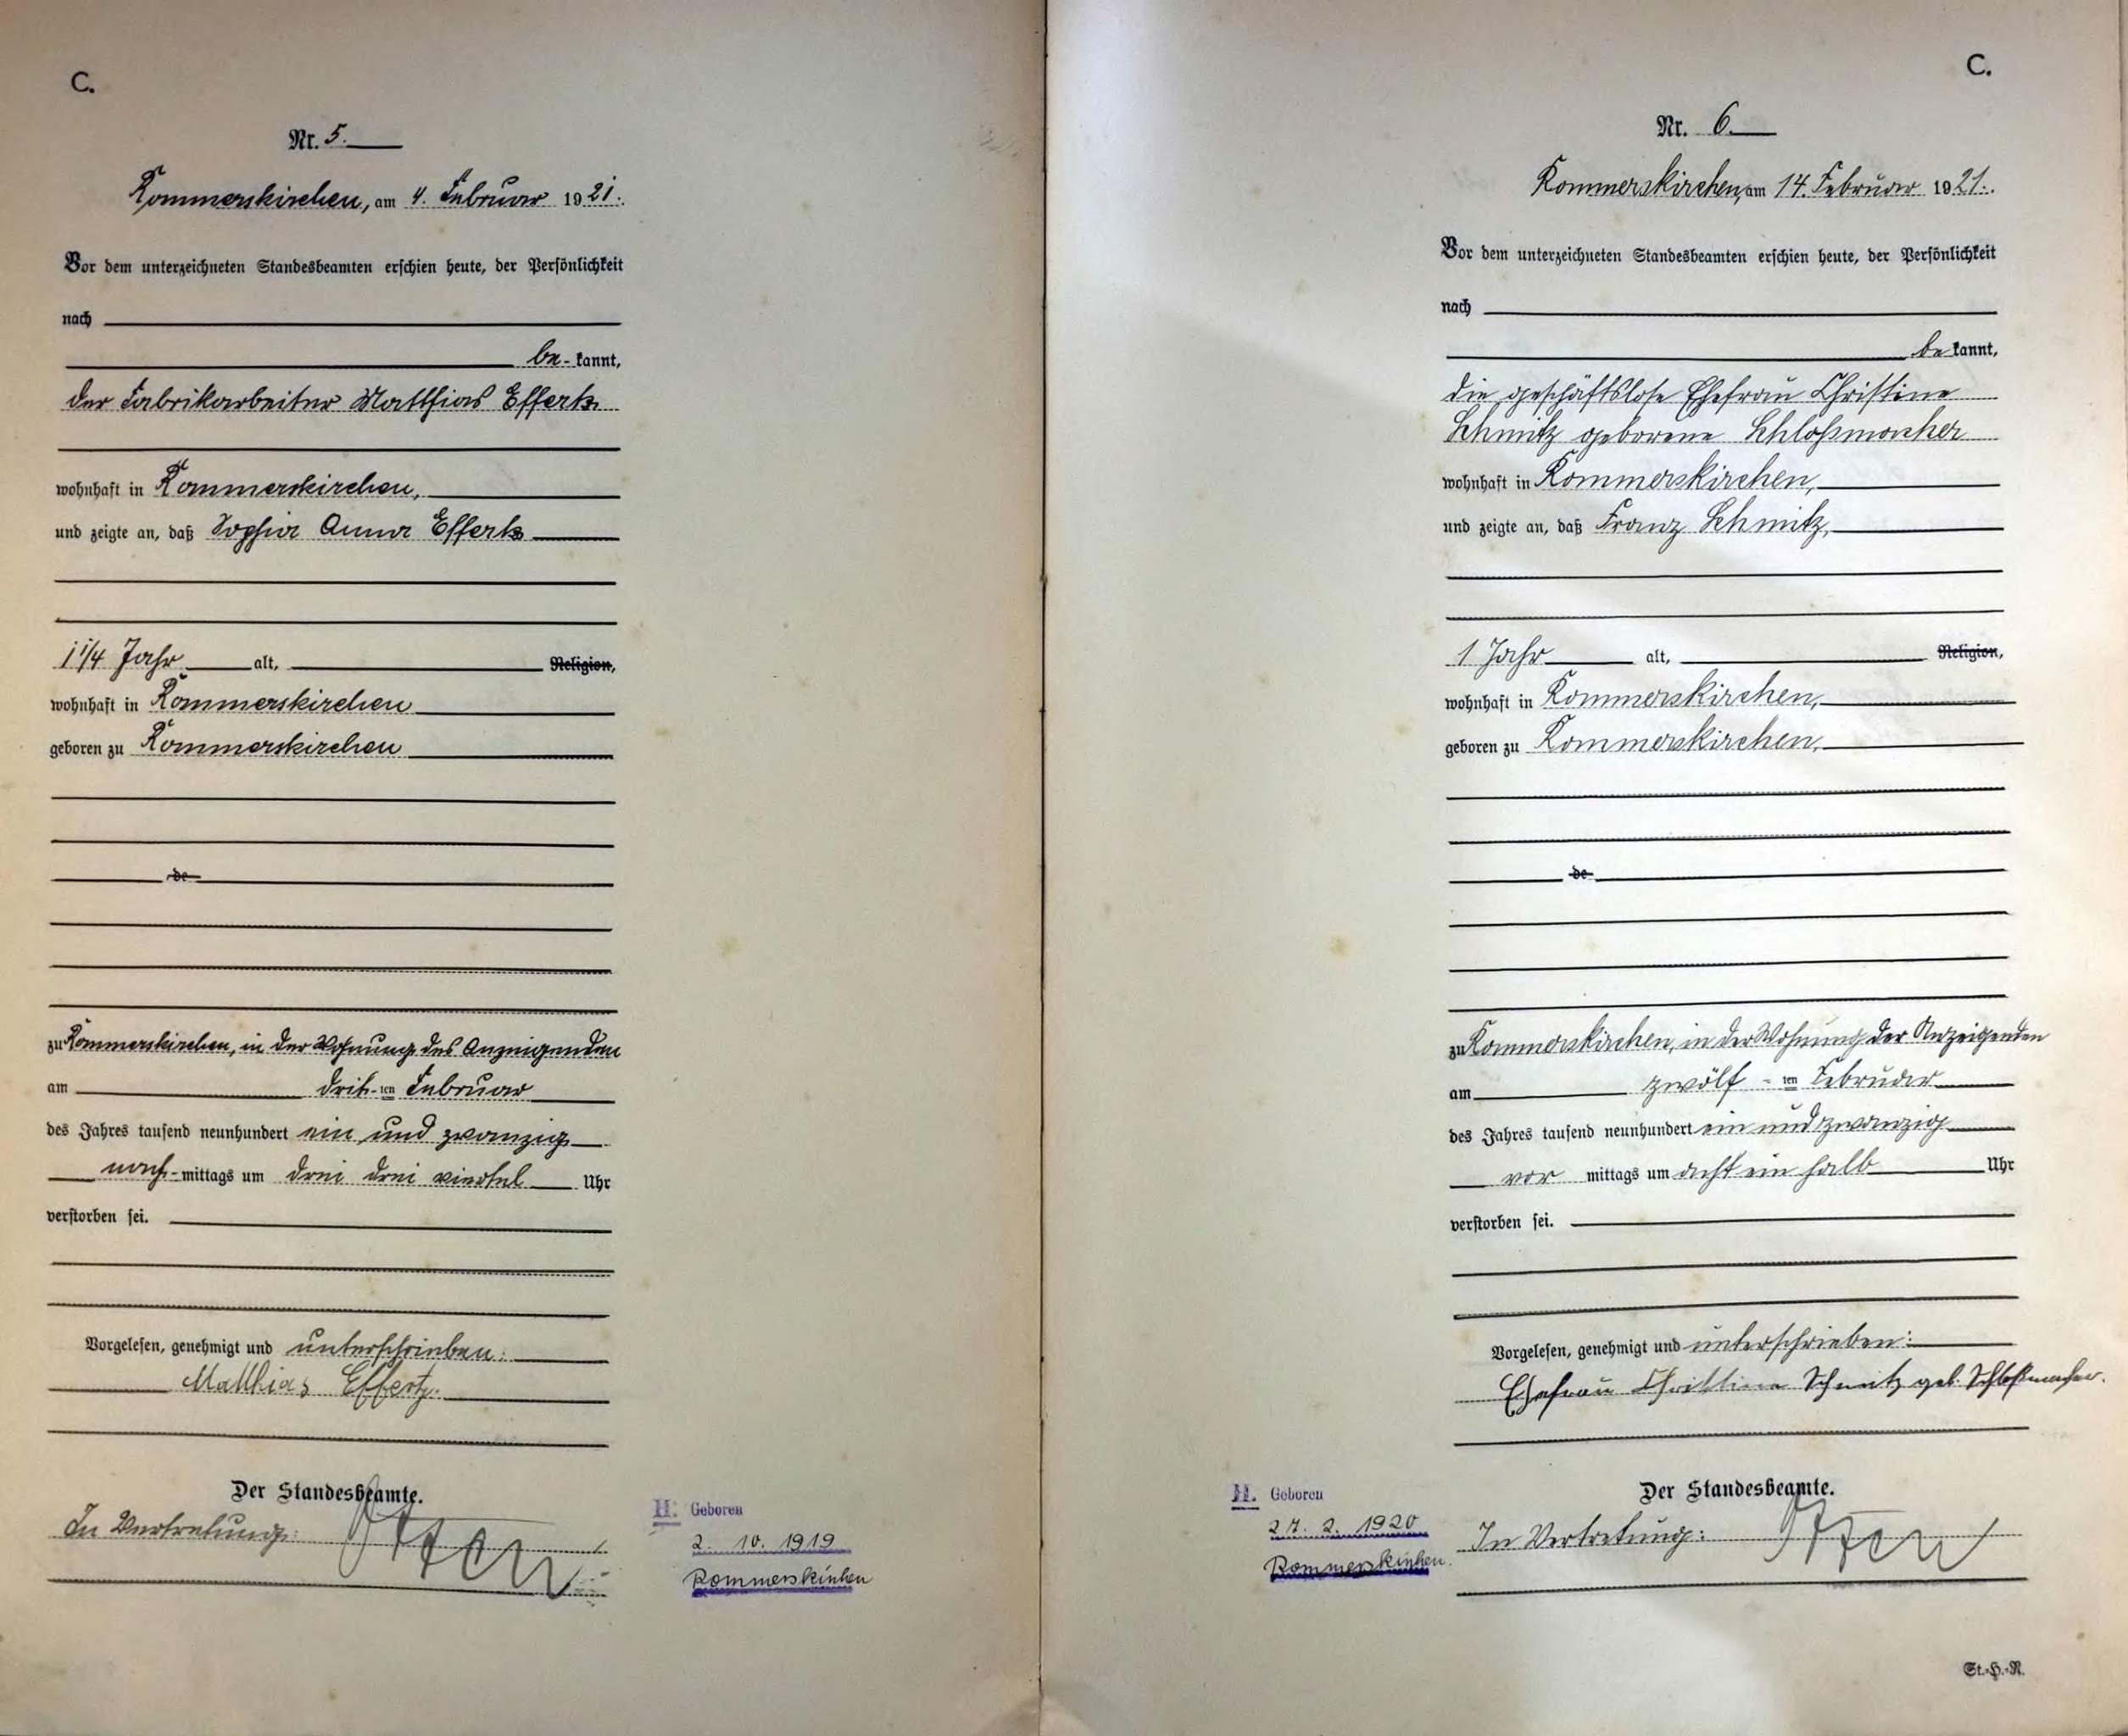 C.
Nr. 5.
Rommerskirchen, am 4. Februar 1921.
Vor dem unterzeichneten Standesbeamten erschien heute, der Persönlichkeit
nach
be-kannt,
der Fabrikarbeiter Matthias Effertz
wohnhaft in Rommerskirchen,
und zeigte an, daß Sophia Anna Effertz
1 1/4 Jahr alt, Religion,
wohnhaft in Rommerskirchen
geboren zu Rommerskirchen
de
zu Rommerskirchen, in der Wohnung des Anzeigenden
am drit-ten Februar
des Jahres tausend neunhundert ein und zwanzig
nach-mittags um drei drei viertel Uhr
verstorben sei.
Vorgelesen, genehmigt und unterschrieben:
Matthias Effertz.
Der Standesbeamte.
In Vertretung:
H. Geboren
2. 10. 1919
Rommerskirchen
C.
Nr. 6.
Rommerskirchen, am 14. Februar 1921.
Vor dem unterzeichneten Standesbeamten erschien heute, der Persönlichkeit
nach
be kannt,
die geschäftslose Ehefrau Christine
Schmitz geborene Schloßmacher
wohnhaft in Rommerskirchen,
und zeigte an, daß Franz Schmitz,
1 Jahr alt, Religion,
wohnhaft in Rommerskirchen,
geboren zu Rommerskirchen,
de
zu Rommerskirchen, in der Wohnung der Anzeigenden
am zwölf-ten Februar
des Jahres tausend neunhundert ein und zwanzig
vor mittags um acht ein halb Uhr
verstorben sei.
Vorgelesen, genehmigt und unterschrieben:
Ehefrau Christine Schmitz geb. Schloßmacher.
Der Standesbeamte.
In Vertretung:
H. Geboren
27. 2. 1920
Rommerskirchen.
St.-H.-R.